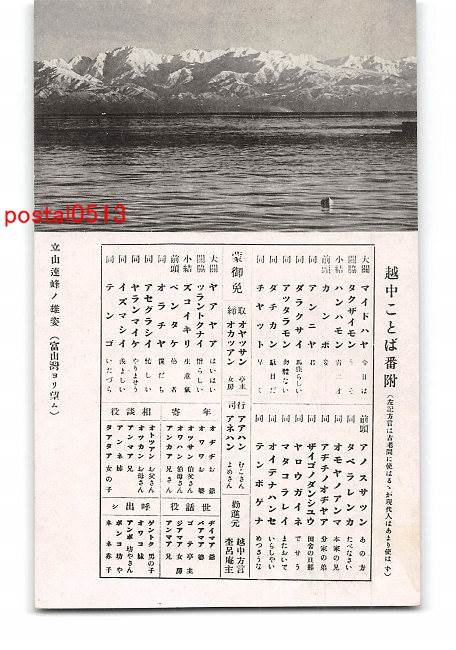 postal0513
越中ことば番附(左記方言は古老間に使はるゝが現代人はあまり使はず)
大關 マイドハヤ 今日は
關脇 タクザイモン うそ
小結 ハンハモン 霄才
前頭 カンポ 姿
同 アンニャ 君
同 ダラクサイ 馬鹿らしい
同 アツタラモン 勿體ない
同 ダチカン 駄目だ
同 チヤット 早く
前頭 アノスサッツ あの方
同 タベラレンカ たべなさい
同 オモヤノアンマ 本家の兄
同 アヂチノオヂヤ 分家の弟
同 ザイゴノダンシユウ 田舎の旦那
同 ヤロウガイネ でせう
同 マタコラレイ またおいで
同 オイデナハンセ いらしやい
同 テンポゲナ めつさうな
蒙御免
取締 オヤッサン 亭主
オカツアン 女房
行司 アアハン むこさん
アネハン よめさん
勸進元 越中方言
奎呂庵主
大關 ヤアヤア はいはい
關脇 ツラントクナイ 憎らしい
小結 ズコイキリ 生意氣
前頭 ベンタケ 愚者
同 オラチャ 僕だち
同 アセグラシイ 忙しい
同 ヤランマイケ やりませう
同 イズマシイ 羨ましい
同 テンゴ いたづら
年寄
オヂヂ お爺
オワワ お婆
オッサン 伯父さん
オワハン 伯母さん
アンカア 兄さん
相談役
オトツアン お父さん
オッカン お母さん
アンマア 兄さん
アンネ 姉
タアタア 女の子
世話役
ヂイマア 爺
バアマア 婆
ゴテ 亭主
ジアマア 女房
アンマア 兄
呼出シ
ゲントク 男の子
オワコ 妹
アンポ 坊やさん
ボンコ 坊や
ネネ 赤子
立山連峰ノ雄姿 (富山灣ヨリ望ム)